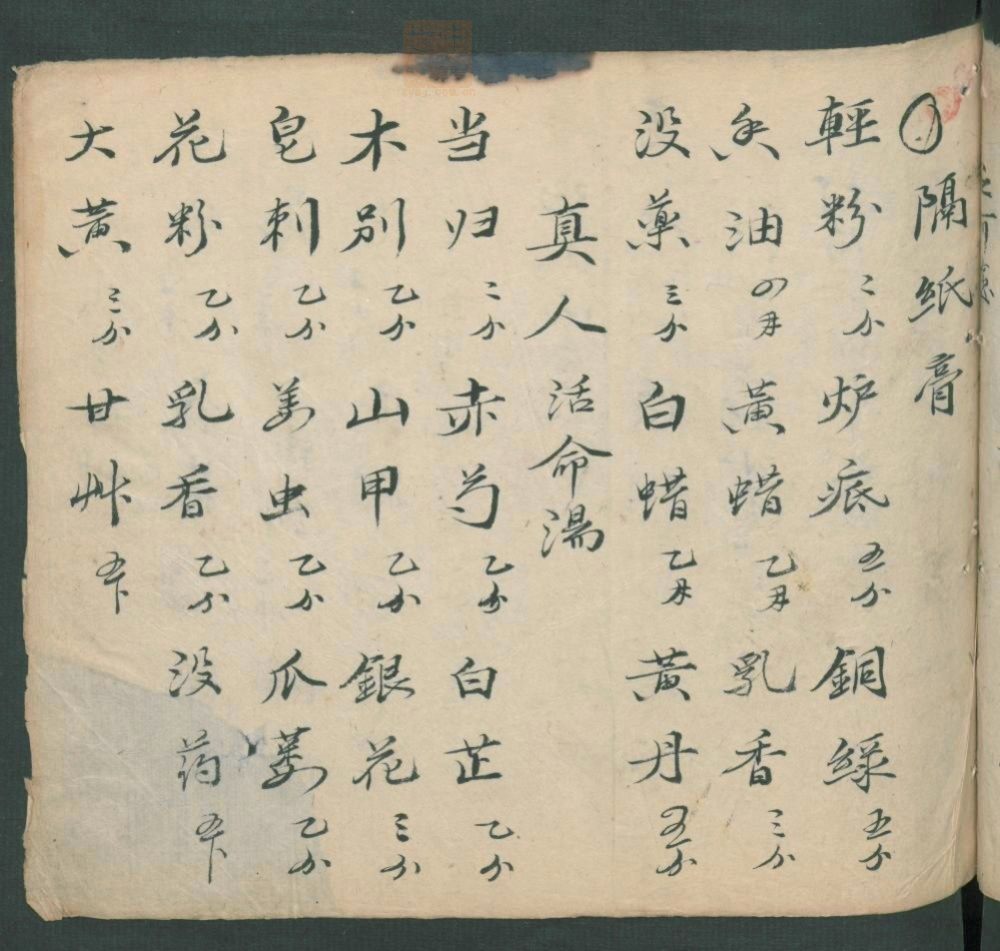 隔紙膏
輕粉二分 炉底五分 銅綠五分
香油四两 黃蜡乙两 乳香三分
没藥三分 白蜡乙两 黃丹五分
真人活命湯
当归二分 赤芍乙分 白芷乙分
木别乙分 山甲乙分 銀花三分
皂刺乙分 姜虫乙分 瓜蒌乙分
花粉乙分 乳香乙分 没药五卜
大黃三分 甘艸五卜